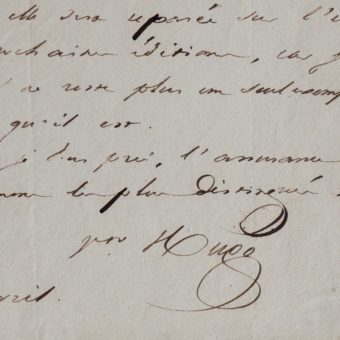 elle sera reparée sur l'
édition, car j
ne reste plus un seul exemp
qu'il est.
je vous prie, l'assurance
la plus distinguée
Hugo
ril.